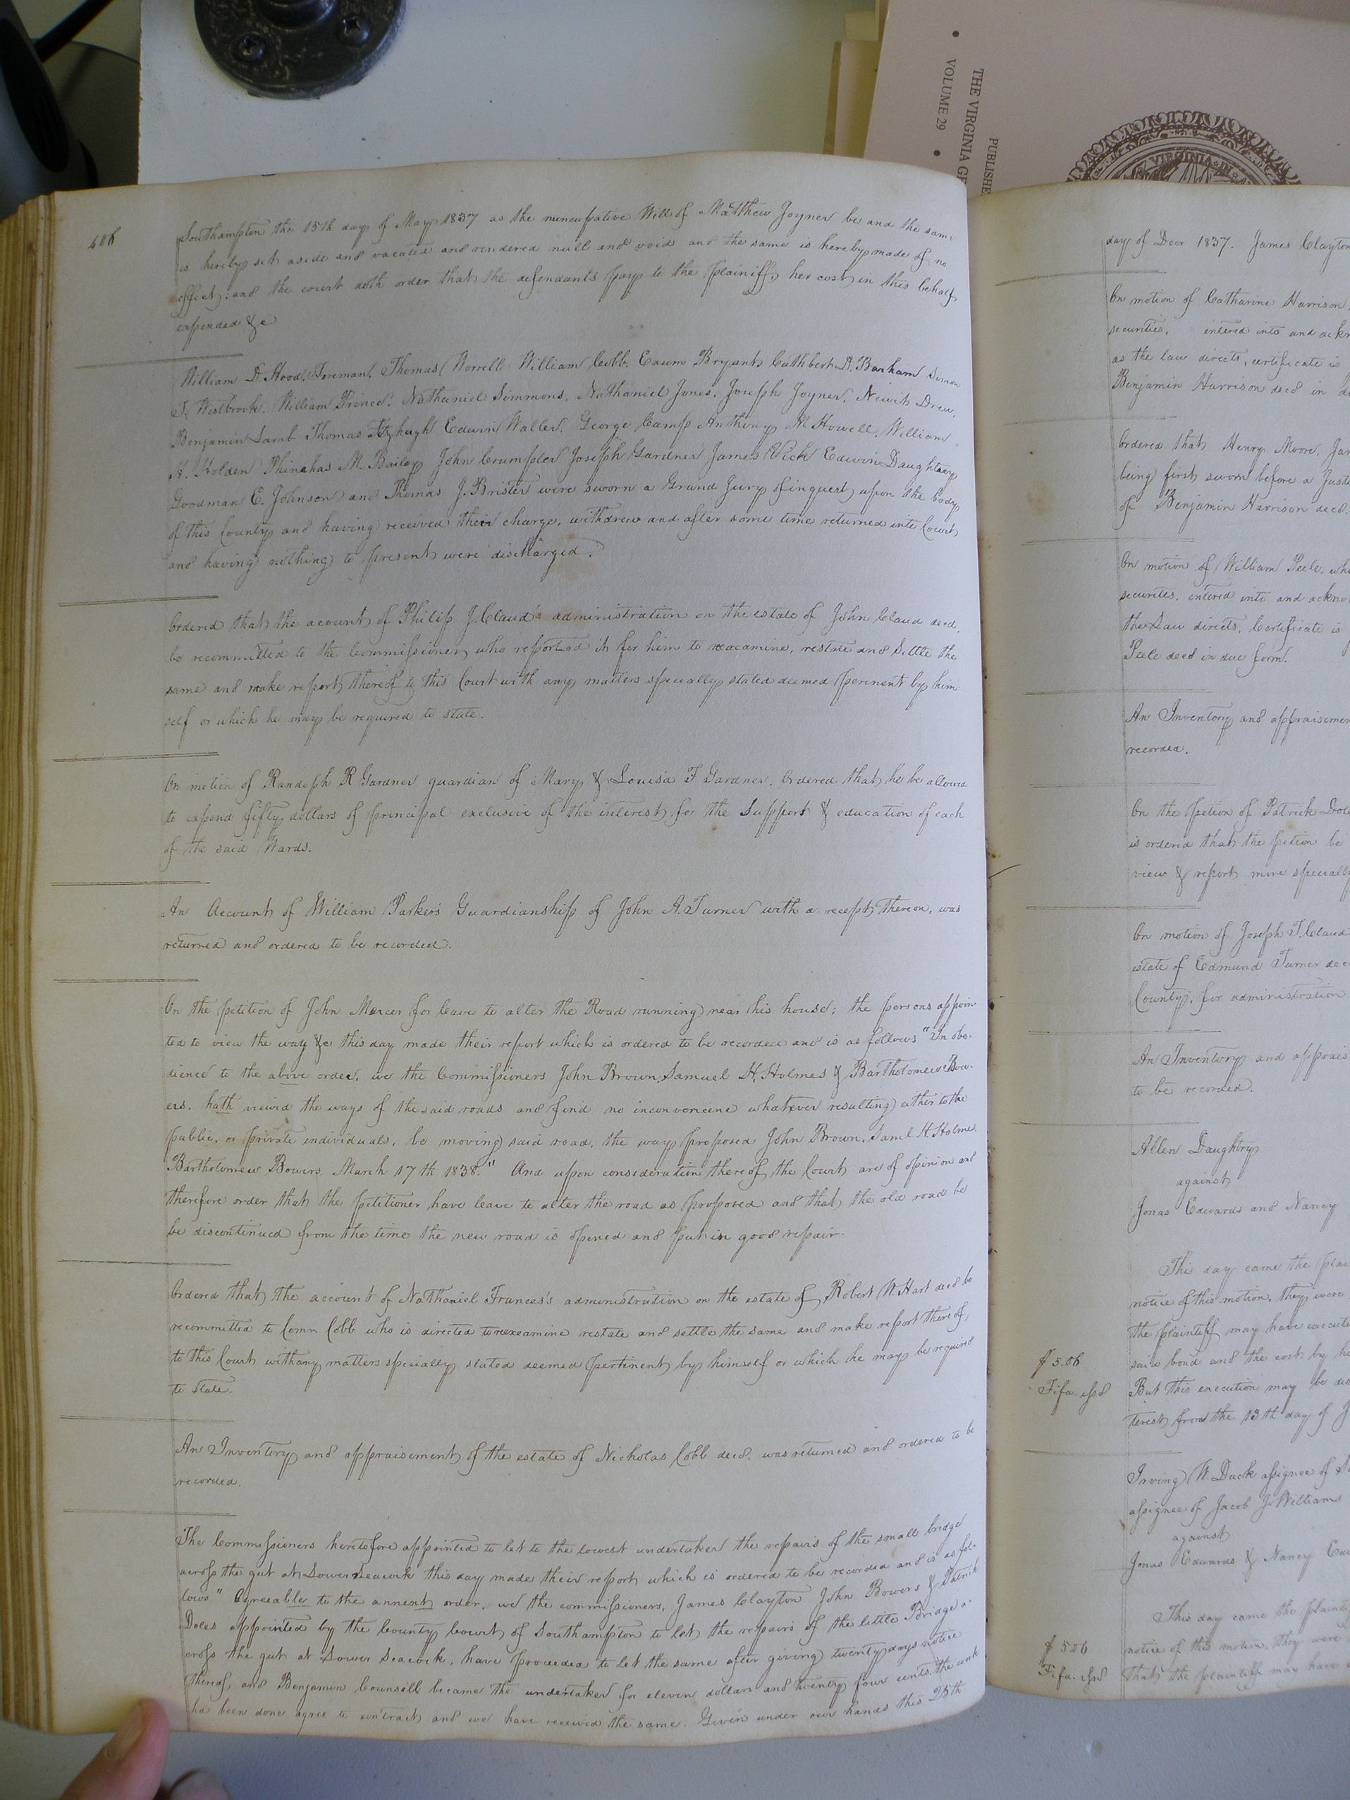 THE VIRGINIA GE
VOLUME 29
PUBLISHE
VIRGINIA IN
406
Southampton the 15th day of May 1837 as the nuncupative Will of Matthew Joyner be and the same
is hereby set aside and vacated and rendered null and void and the same is hereby made of no
effect; and the court doth order that the defendants pay to the plaintiff, her cost in this behalf
expended &c
William D. Hood, Foreman, Thomas Worrell William Cobb. Exum Bryant, Cuthbert D. Barham Simon
T. Westbrook. William Prince, Nathaniel Simmons, Nathaniel Jones, Joseph Joyner, Newit Drew,
Benjamin Lamb Thomas Fitzhugh Edwin Waller, George Camp Anthony M. Howell, William
H. Holden Phinahas M. Bailey John Crumpler Joseph Gardner James Vick Edwin Daughtrey
Goodman E. Johnson and Thomas J. Brister were sworn a Grand Jury of inquest upon the body
of this County and having received their charge, withdrew and after some time returned into Court
and having nothing to present were discharged.
Ordered that the account of Philip J. Claud's administration on the estate of John Claud decd.
be recommitted to the Commissioner who reported it for him to reexamine, restate and settle the
same and make report thereof to this Court with any matters specially stated deemed perinent by him
self or which he may be required to state.
On motion of Randolph R Gardner guardian of Mary & Louisa F Gardner. Ordered that he be allowed
to expend fifty dollars of principal exclusive of the interest for the Support & education of each
of the said Wards.
An Account of William Parker's Guardianship of John A. Turner with a recept thereon, was
returned and ordered to be recorded.
On the petition of John Mercer for leave to alter the Road running near his house; the persons appoin
ted to view the way &c this day made their report which is ordered to be recorded and is as follows "In obe-
dience to the above order, we the Commissioners John Brown, Samuel H. Holmes & Bartholomew Bow-
ers. hath viewed the ways of the said roads and find no inconvenience whatever resulting either to the
public, or private individuals, be moving said road, the way proposed John Brown, Saml H. Holmes
Bartholomew Bowers March 17th 1838." And upon consideration thereof, the Court are of opinion and
therefore order that the petitioner have leave to alter the road as proposed and that the old road be
be discontinued from the time the new road is opened and put in good repair.
Ordered that the account of Nathaniel Francis's administration on the estate of Robert W. Hart decd be
recommitted to Comr Cobb who is directed to reexamine restate and settle the same and make report thereof,
to this Court with any matters specially stated deemed pertinent by himself or which he may be required
to State.
An Inventory and appraisement of the estate of Nicholas Cobb decd. was returned and ordered to be
recorded.
The Commissioners heretofore appointed to let to the lowest undertaker the repairs of the small bridge
across the gut at Lower Seacock this day made their report which is ordered to be recorded and is as fol-
lows "Agreeable to the annext order, we the commissioners, James Clayton John Bowers & Patrick
Doles appointed by the County Court of Southampton to let the repairs of the little Bridge a-
cross the gut at Lower Seacock, have proceeded to let the same after giving twenty days notice
thereof, and Benjamin Counsell became the undertaker for eleven dollars and twenty four cents. the work
has been done agree to contract and we have received the same. Given under our hands this 25th
day of Decr 1837. James Clayton
On motion of Catharine Harrison
securities, entered into and ackn
as the law directs, certificate is
Benjamin Harrison decd in du
Ordered that Henry Moore, Jam
being first sworn before a Justi
of Benjamin Harrison decd.
On motion of William Peele, wh
securites. entered into and ackno
the Law directs. Certificate is
Peele decd in due form.
An Inventory and appraisemen
recorded.
On the petion of Patrick Dole
is ordered that the petion be
view & report more specially
On motion of Joseph T. Claud
estate of Edmund Turner dec
County, for administration
An Inventory and apprais
to be recorded.
Allen Daughtry
against
Jonas Edwards and Nancy
This day came the plai
notice of this motion, they were
the plaintiff may have execute
said bond and the cost by h
But this execution may be
terest from the 13th day of J
$5.06
Fifa issd
Irving W. Duck assignee of
assignee of Jacob J. Williams
against
Jonas Edwards & Nancy Edw
This day came the plainti
notice of this motion, they were
that the plaintiff may have
$5.06
Fifa issd